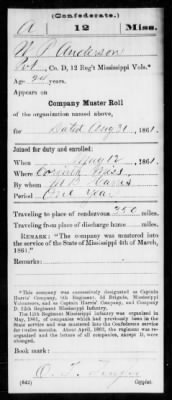 (Confederate.)
A 12 Miss.
W. P. Anderson
Pvt, Co. D, 12 Reg't Mississippi Vols.*
Age 24 years.
Appears on
Company Muster Roll
of the organization named above,
for Dated Aug 31, 1861.
Joined for duty and enrolled:
When May 12, 1861.
Where Corinth Miss
By whom
Period One Year
Traveling to place of rendezvous 250 miles.
Traveling from place of discharge home miles.
REMARK: "The company was mustered into
the service of the State of Mississippi 4th of March,
1861."
Remarks:
*This company was successively designated as Captain
Harris' Company, 4th Regiment, 2d Brigade, Mississippi
Volunteers, and as Captain Harris' Company, and Company
D, 12th Regiment Mississippi Infantry.
The 12th Regiment Mississippi Infantry was organized in
May, 1861, of companies which had previously been in the
State service and was mustered into the Confederate service
for twelve months. About April, 1862, the regiment was
and the letters of all the companies, except D, were
changed.
Book mark:
(642) Copyist.